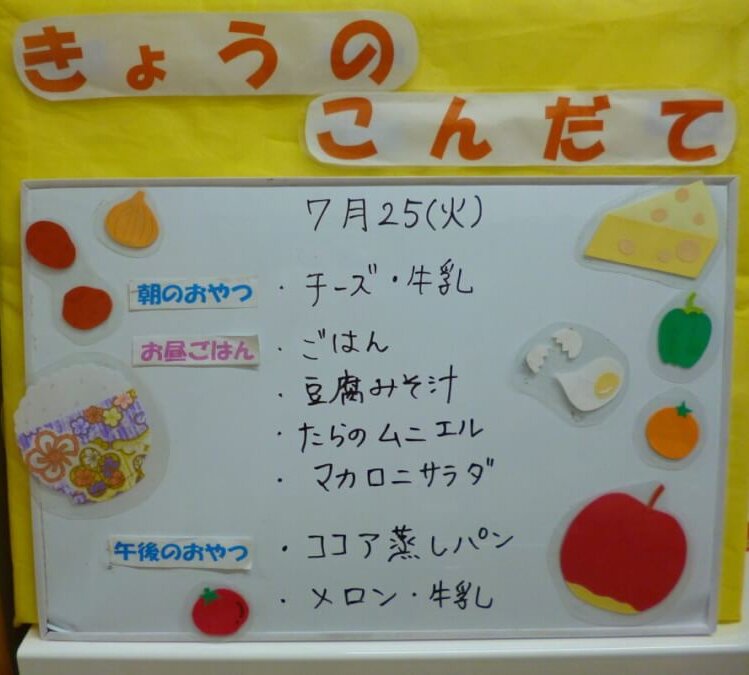 きょうの
こんだて
7月25(火)
朝のおやつ ・チーズ・牛乳
お昼ごはん ・ごはん
・豆腐みそ汁
・たらのムニエル
・マカロニサラダ
午後のおやつ ・ココア蒸しパン
・メロン・牛乳